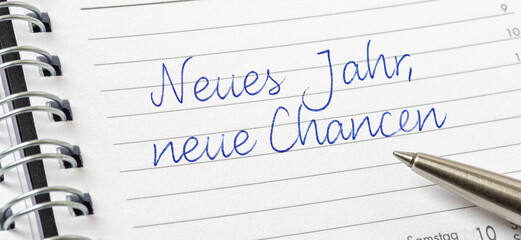 9
10
Neues Jahr,
neue Chancen
Samstag 10